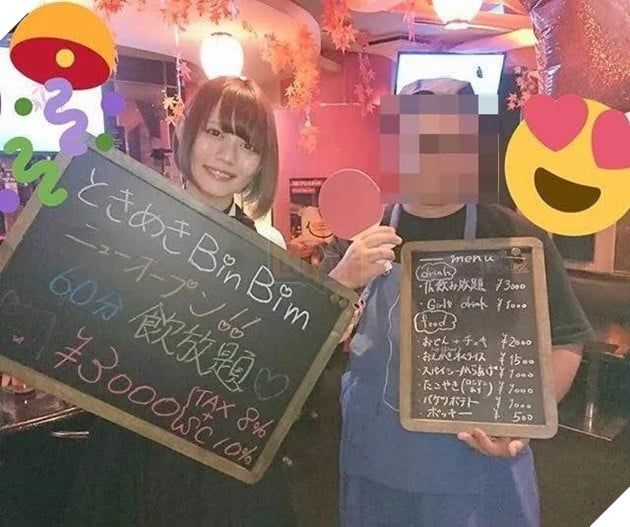 ときめきBinBim
ニューオープン!!
60分 飲放題♡
¥3000 TAX 8%
+
SC 10%
menu
drink
飲み放題 ¥3000
・Girls drink ¥1000
food
・おでん+チェキ ¥2000
・おえかきオムライス ¥1500
・スパイシーからあげ ¥1000
・たこやき(ロシアンあり) ¥1000
・バケツポテト ¥1000
・ポッキー ¥500